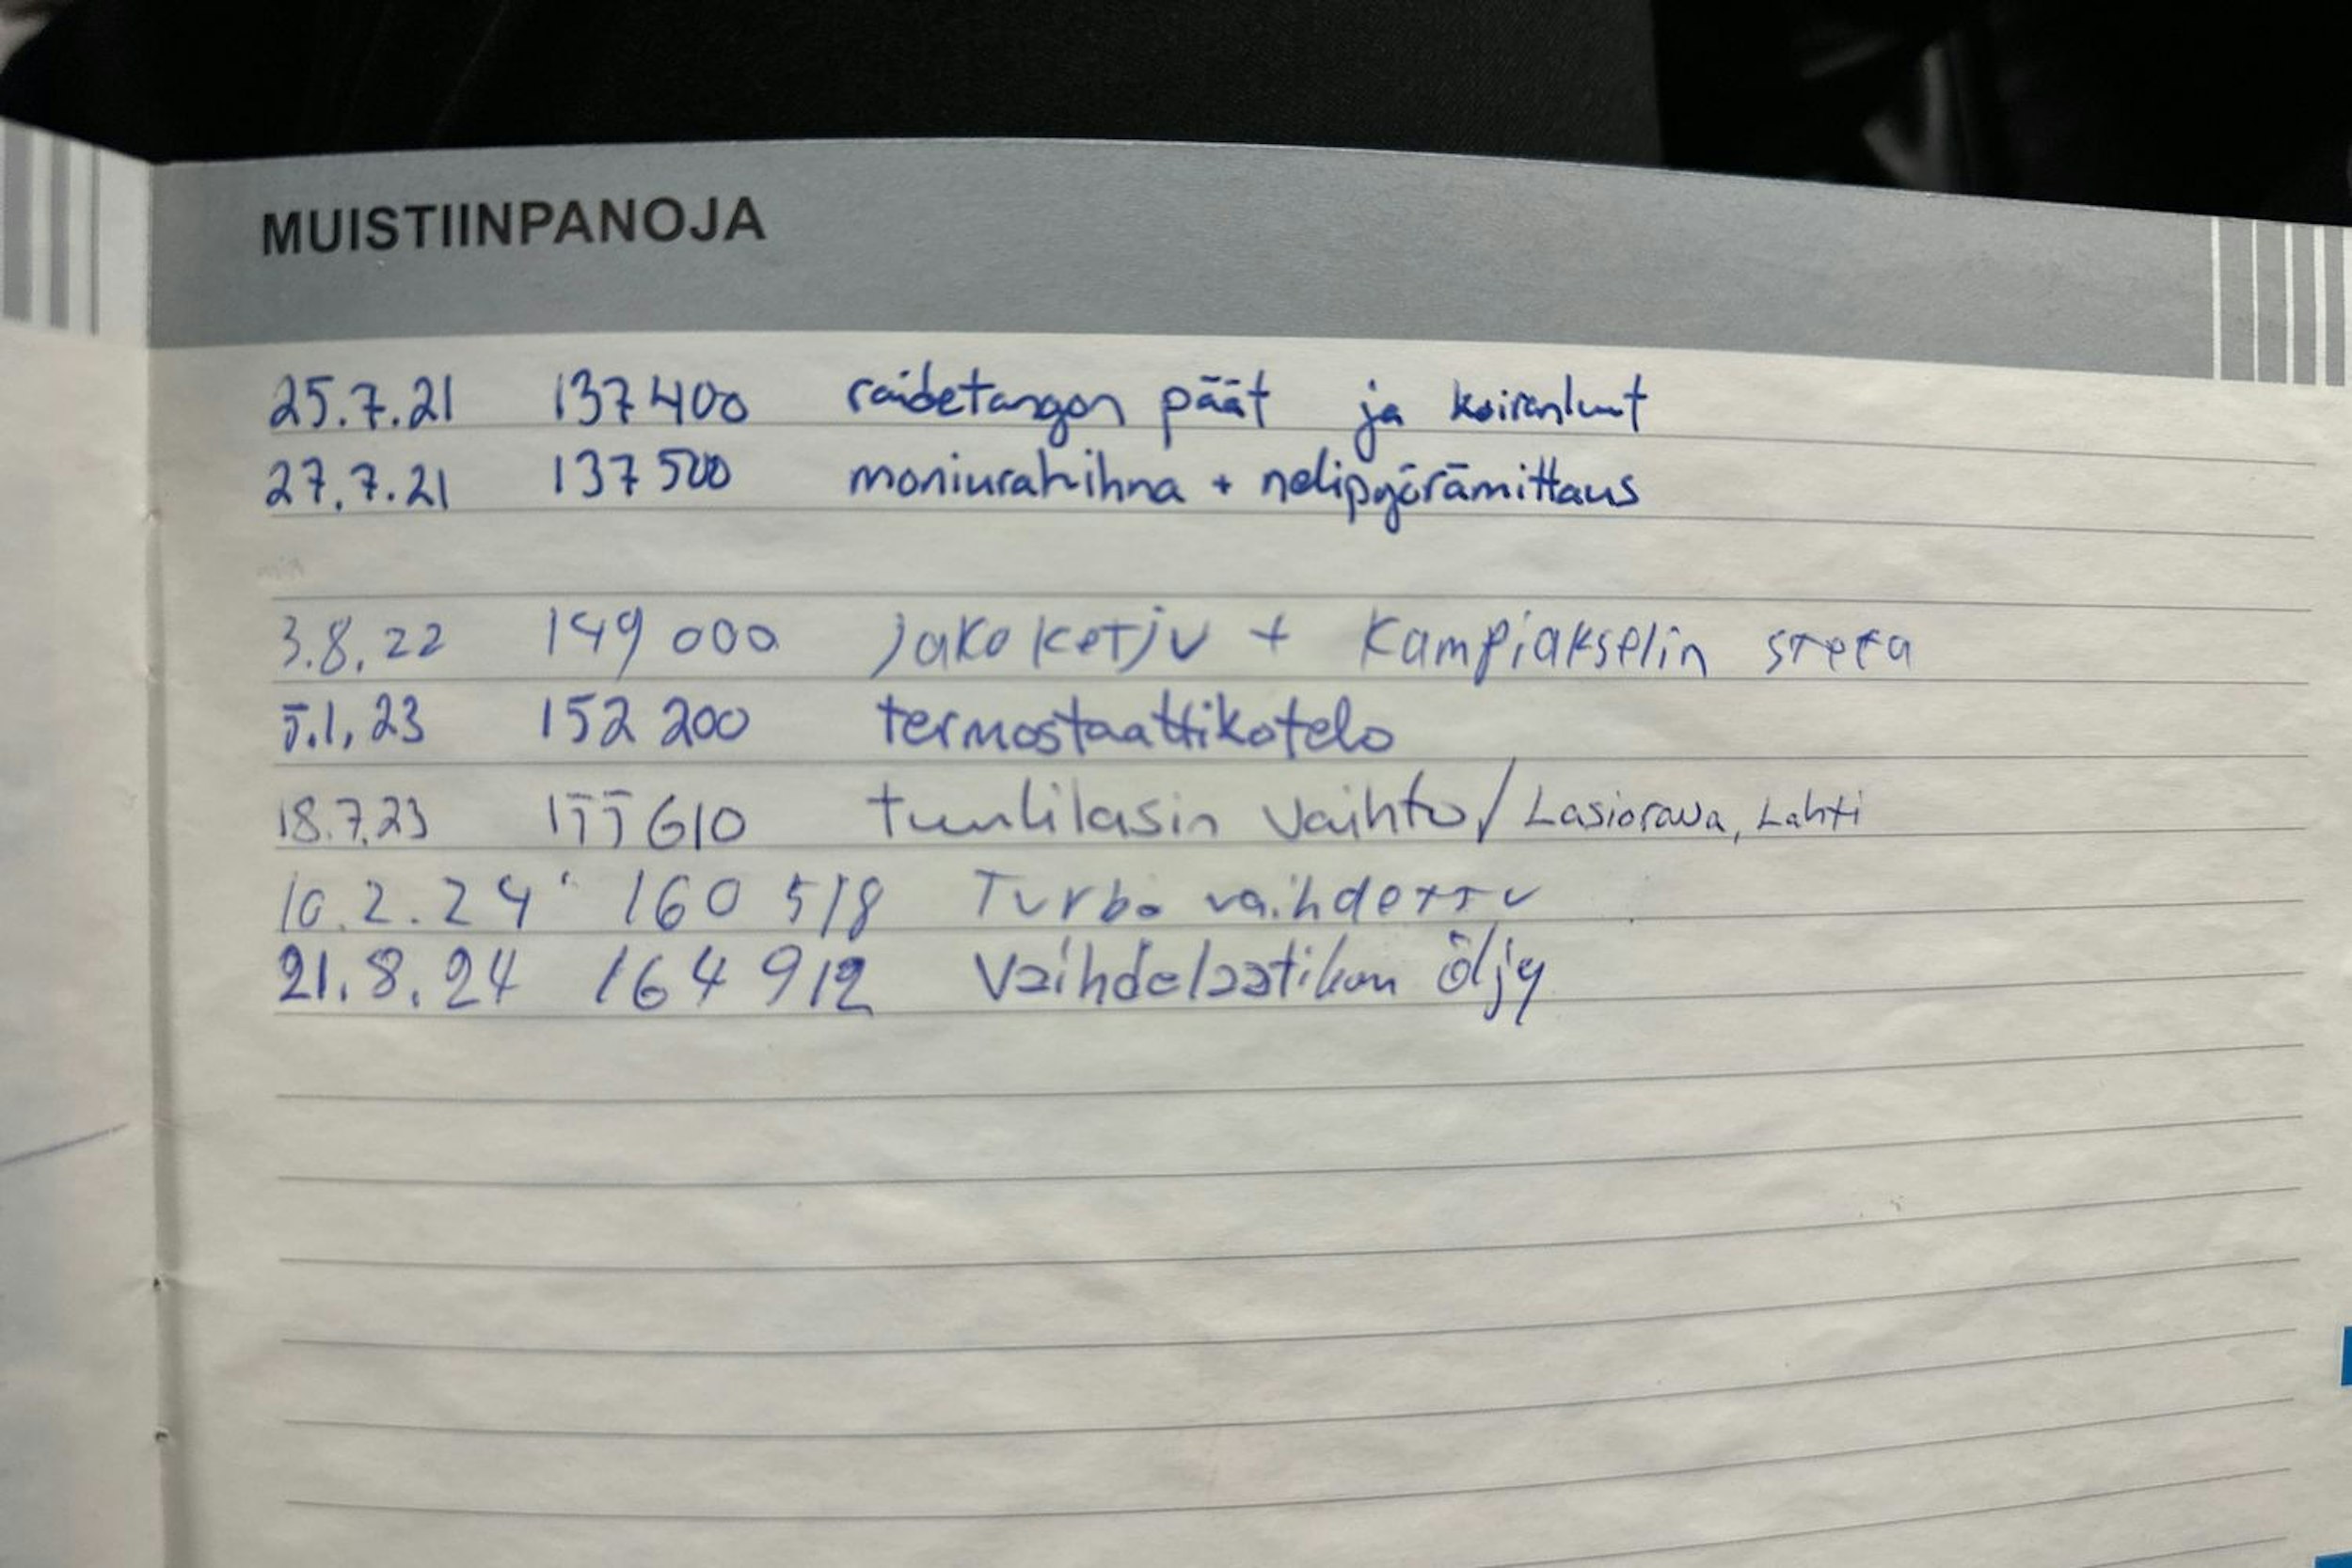 MUISTIINPANOJA
25.7.21 137400 raidetangon päät ja koiranluut
27.7.21 137500 moniurahihna + nelipyörämittaus
3.8.22 149 000 Jakoketju + Kampiakselin stefa
5.1.23 152 200 termostaattikotelo
18.7.23 155 610 tuulilasin vaihto / Lasiorava, Lahti
10.2.24 160 518 Turbo vaihdettu
21.8.24 164 912 Vaihdelaatikon öljy